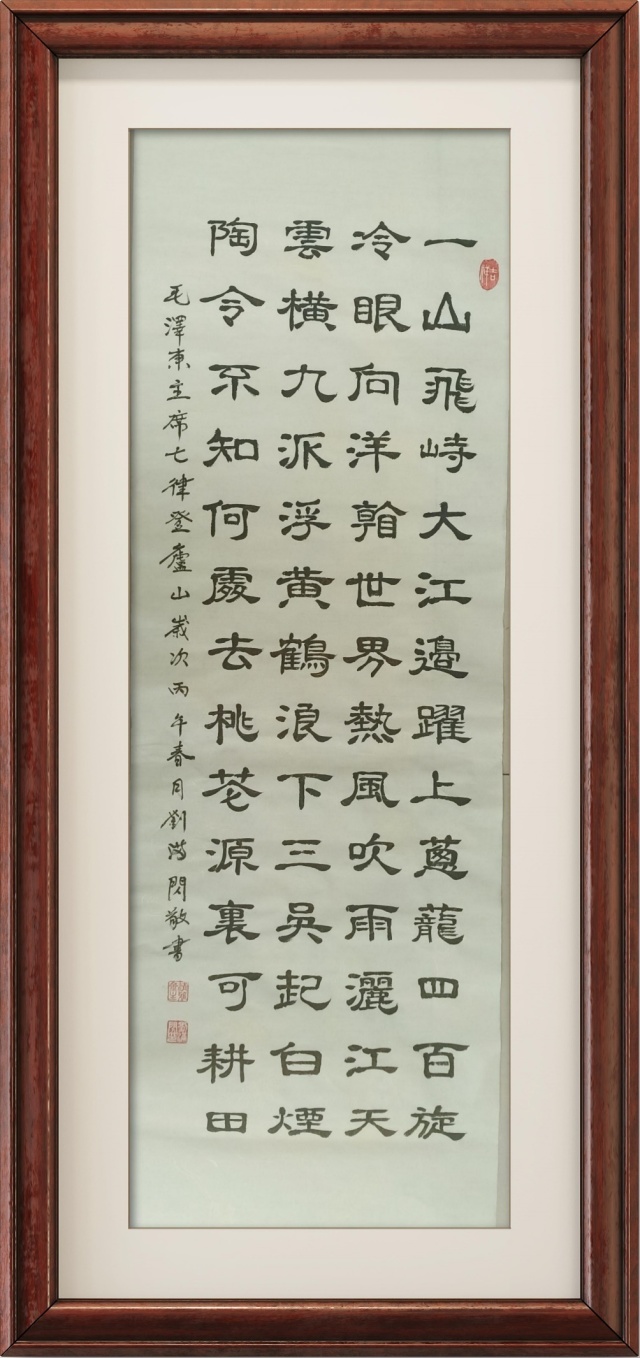 吉祥
一山飛峙大江邊躍上蔥蘢四百旋
冷眼向洋看世界熱風吹雨灑江天
雲橫九派浮黃鶴浪下三吳起白煙
陶令不知何處去桃花源裏可耕田
毛澤東主席七律登廬山歲次丙午春月劉敬書